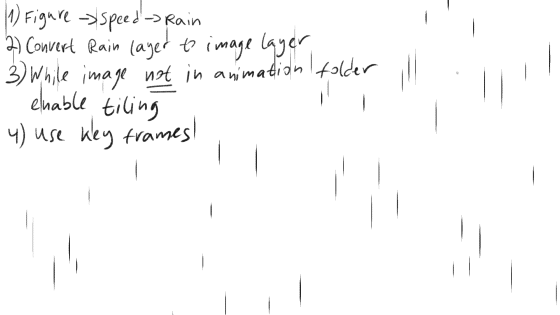 1) Figure → Speed → Rain
2) Convert Rain layer to image layer
3) While image not in animation folder
enable tiling
4) Use key frames